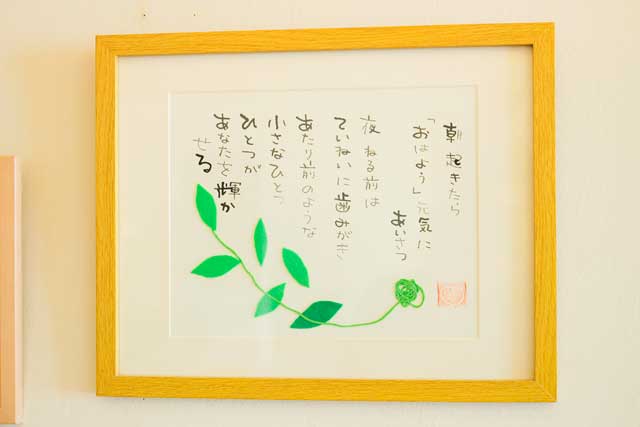 朝 起きたら
「おはよう」元気に
あいさつ
夜 ねる前は
ていねいに歯みがき
あたり前のような
小さなひとつ
ひとつが
あなたを輝か
せる